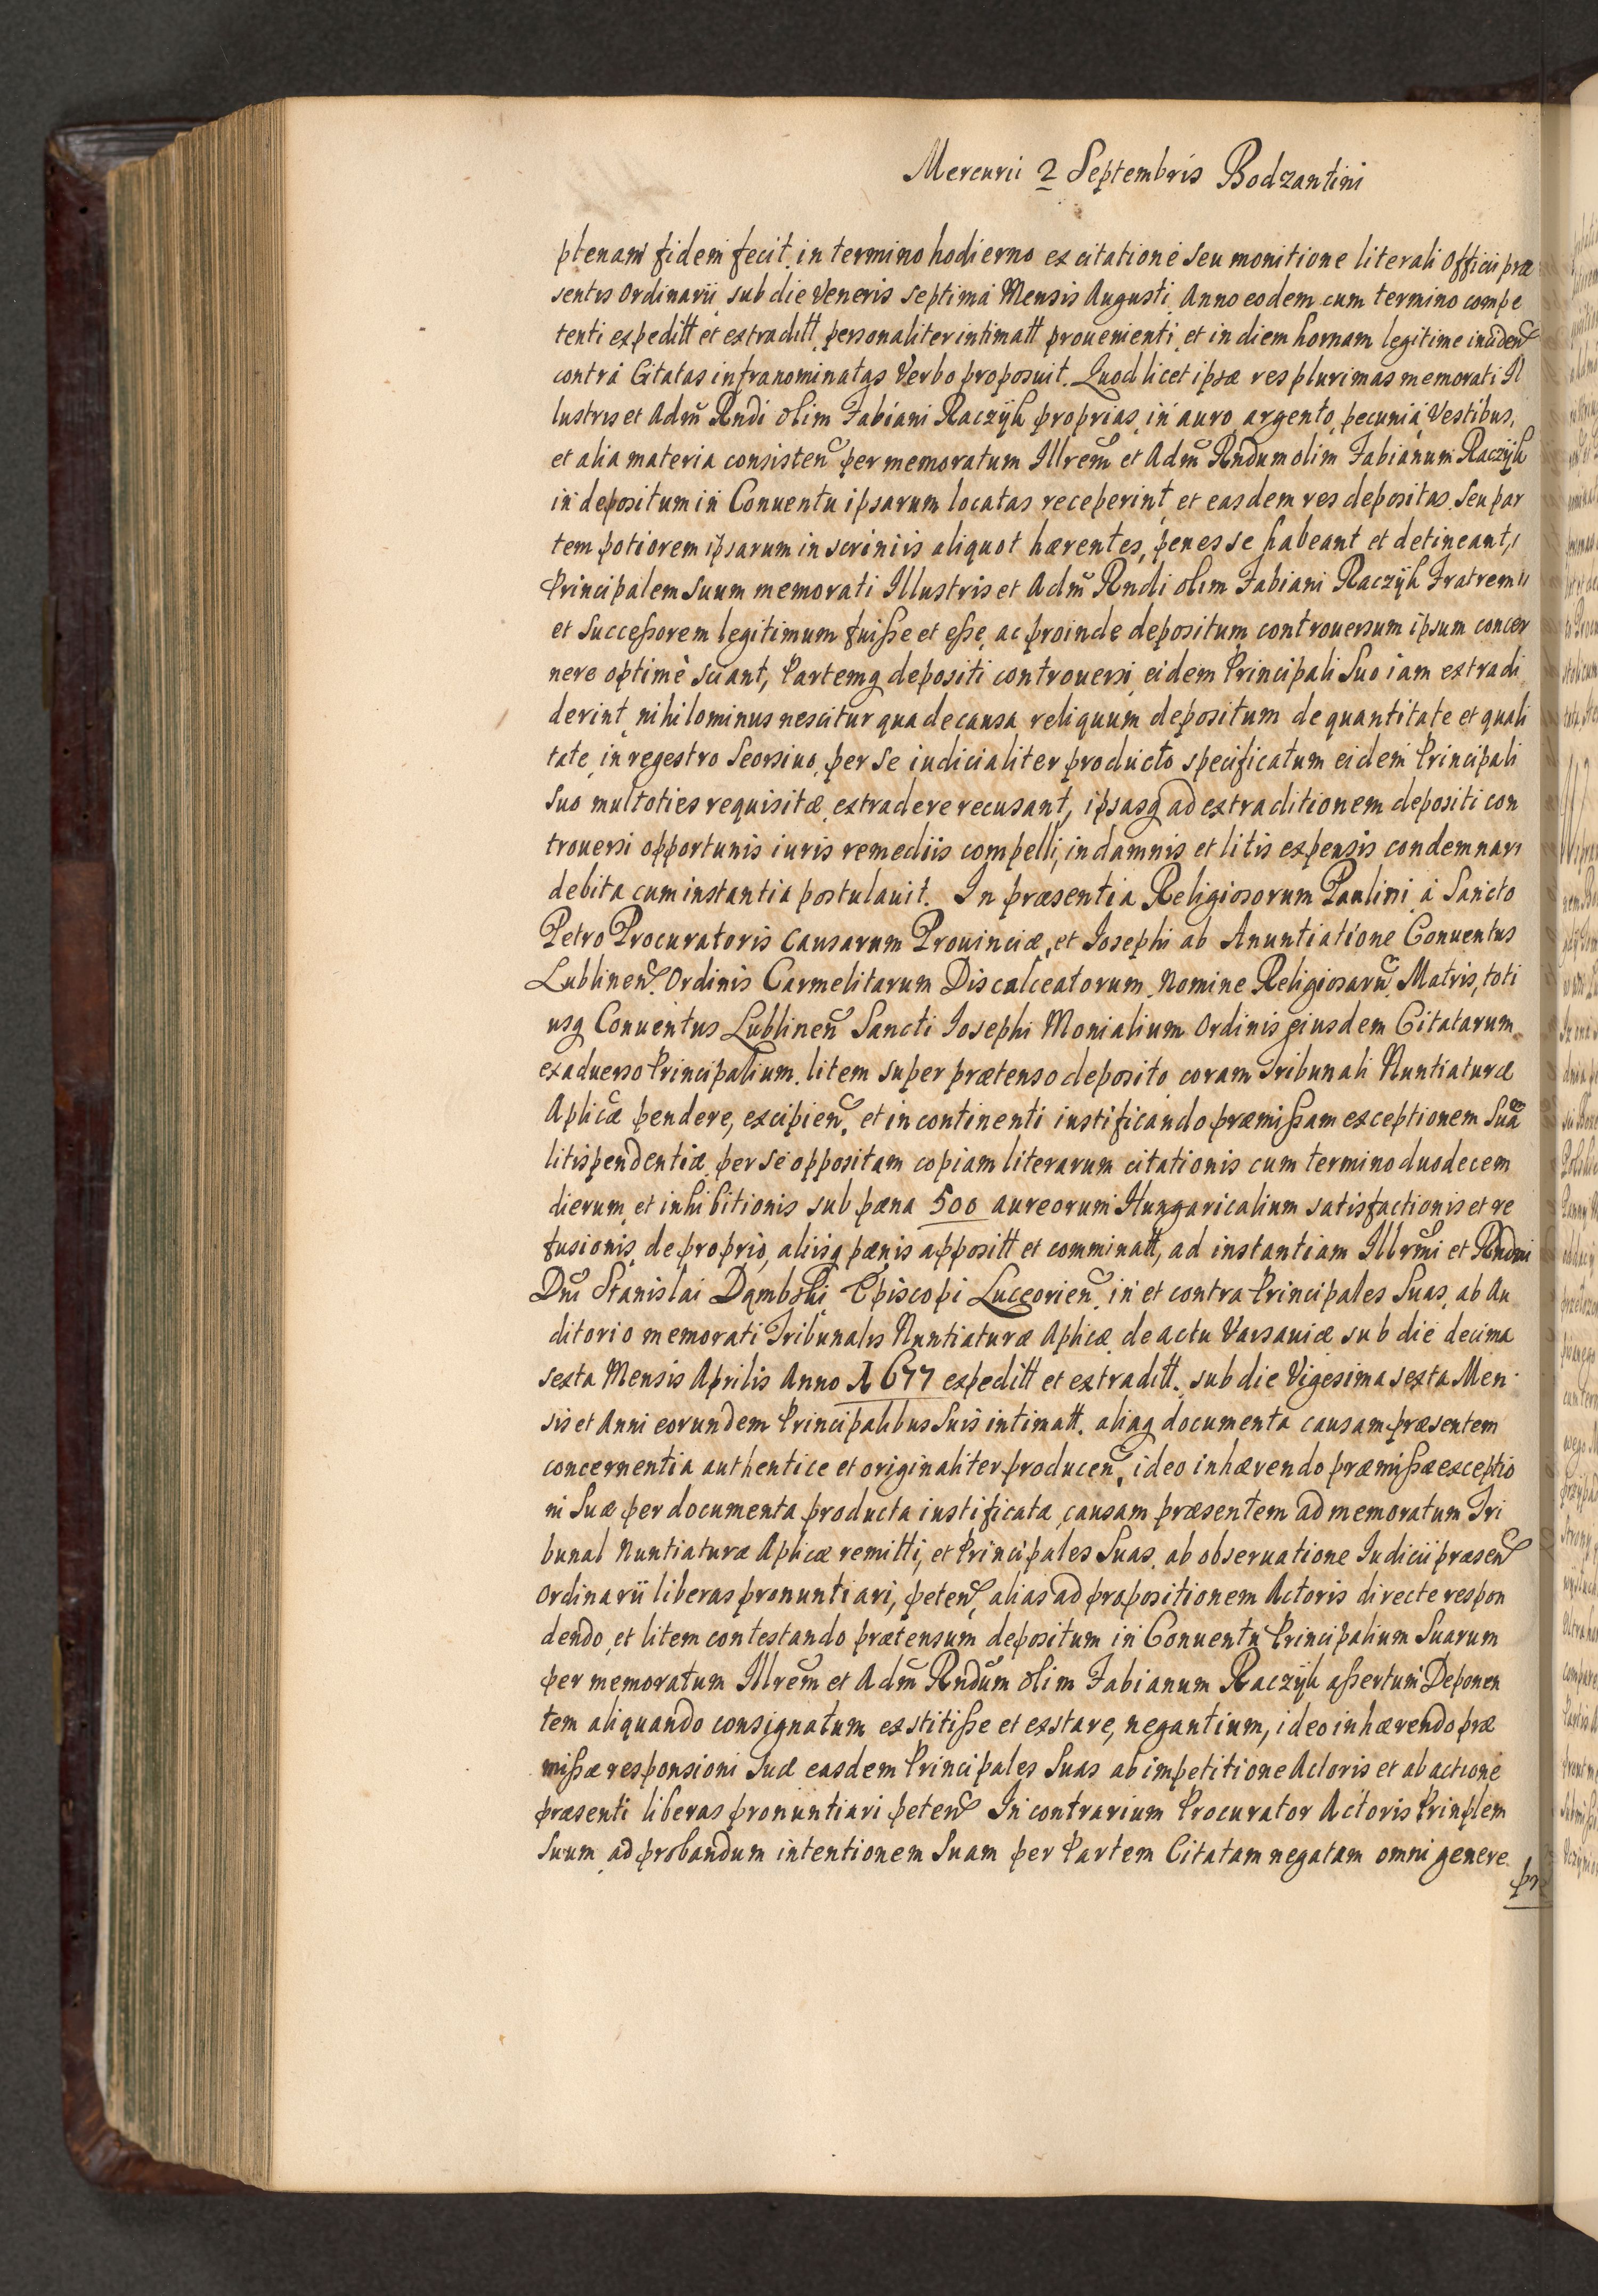 Mercurii 2 Septembris Bodzantini
plenam fidem fecit in termino hodierno ex citatione seu monitione literali Officii præ
sentis Ordinarii sub die Veneris Septima Mensis Augusti Anno eodem cum termino compe
tenti expeditt et extraditt personaliter intimatt prouenienti et in diem hornam legitime inciden
contra Citatas infranominatas Verbo proposuit. Quod licet ipsæ res plurimas memorati Il
lustris et Adm̃ Rndi olim Fabiani Raczyk proprias in auro argento, pecunia, Vestibus,
et alia materia consisten per memoratum Illrem̃ et Adm̃ Rndum olim Fabianum Raczyk
in depositum in Conuentu ipsarum locatas receperint et easdem res depositas seu par
tem potiorem ipsarum in scriniis aliquot hærentes, penes se habeant et detineant,
Principalem suum memorati Illustris et Adm̃ Rndi olim Fabiani Raczyk Fratrem
et Successorem legitimum fuisse et esse, ac proinde depositum controuersum ipsum concer
nere optimè sciant, Partemq depositi controuersi eidem Principali Suo iam extradi
derint nihilominus nescitur qua de causa reliquum depositum de quantitate et quali
tate in regestro Seorsiuo per se iudicialiter producto specificatum eidem Principali
Suo multoties requisitæ extradere recusant, ipsasq ad extraditionem depositi con
trouersi opportunis iuris remediis compelli, in damnis et litis expensis condemnari
debita cum instantia postulauit. In præsentia Religiosorum Paulini à Sancto
Petro Procuratoris Causarum Prouinciæ, et Josephi ab Anuntiatione Conuentus
Lublinen. Ordinis Carmelitarum Discalceatorum Nomine Religiosarũ Matris, toti
usq Conuentus Lublinen Sancti Josephi Monialium Ordinis eiusdem Citatarum
exaduerso Principalium. litem super prætenso deposito coram Tribunali Nuntiaturæ
Aplicæ pendere, excipien. et in continenti iustificando præmissam exceptionem Suã
litispendentiæ per se oppositam copiam literarum citationis cum termino duodecem
dierum et inhibitionis sub pæna 500 aureorum Hungaricalium satisfactionis et re
fusionis de proprio, aliisq pænis appositt et comminatt, ad instantiam Illrm̃i et Rndmi
Dnĩ Stanislai Dąmbski Episcopi Luceorien. in et contra Principales Suas, ab Au
ditorio memorati Tribunalis Nuntiaturæ Aplicæ de actu Varsauiæ sub die decima
sexta Mensis Aprilis Anno 1677 expeditt et extraditt. sub die Vigesima sexta Men
sis et Anni eorundem Principalibus Suis intimatt. aliaq documenta causam præsentem
concernentia authentice et originaliter producen, ideo inhærendo præmissæ exceptio
ni Suæ per documenta producta iustificata, causam præsentem ad memoratum Tri
bunal Nuntiaturæ Aplicæ remitti, et Principales Suas ab obseruatione Iudicii præsen
Ordinarii liberas pronuntiari, peten, alias ad propositionem Actoris directe respon
dendo et litem contestando prætensum depositum in Conuentu Principalium Suarum
per memoratum Illrem̃ et Adm̃ Rndũm olim Fabianum Raczyk assertum Deponen
tem aliquando consignatum exstitisse et exstare, negantium, ideo inhærendo præ
missæ responsioni Suæ easdem Principales Suas ab impetitione Actoris et ab actione
præsenti liberas pronuntiari peten In contrarium Procurator Actoris Prinplem
Suum ad probandum intentionem Suam per Partem Citatam negatam omni genere